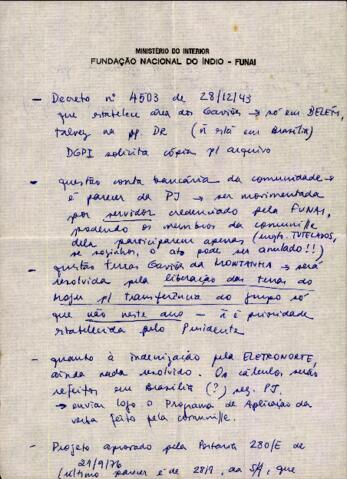 MINISTÉRIO DO INTERIOR
FUNDAÇÃO NACIONAL DO ÍNDIO - FUNAI
- Decreto nº 4503 de 28/12/43
que estabelece área dos Gaviões → só em BELÉM,
talvez na DR (ñ está em Brasília)
DGPI solicita cópia p/ arquivo
- questão conta bancária da comunidade →
é parecer da PJ → ser movimentada
por servidor credenciado pela FUNAI,
podendo os membros da comunid/e
dela participarem apenas (TUTELADOS,
se sozinhos, o ato pode ser anulado!!)
- questão terras Gavião da MONTANHA → será
resolvida pela liberação das terras do
p/ transferência do grupo só
que não neste ano - ñ é prioridade
estabelecida pelo Presidente
- quanto à indenização pela ELETRONORTE,
ainda nada resolvido. Os cálculos serão
refeitos em Brasília (?) seg. PJ.
→ enviar logo o Programa de Aplicação da
verba feito pela comunid/e.
- Projeto aprovado pela Portaria 280/E de
21/9/76
(último parecer é de 28/9, da que